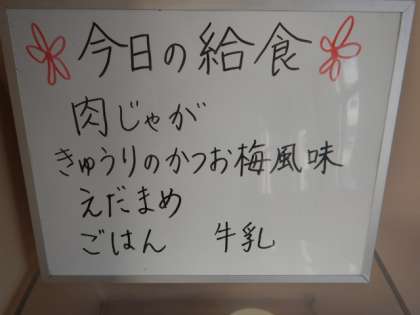 今日の給食
肉じゃが
きゅうりのかつお梅風味
えだまめ
ごはん 牛乳